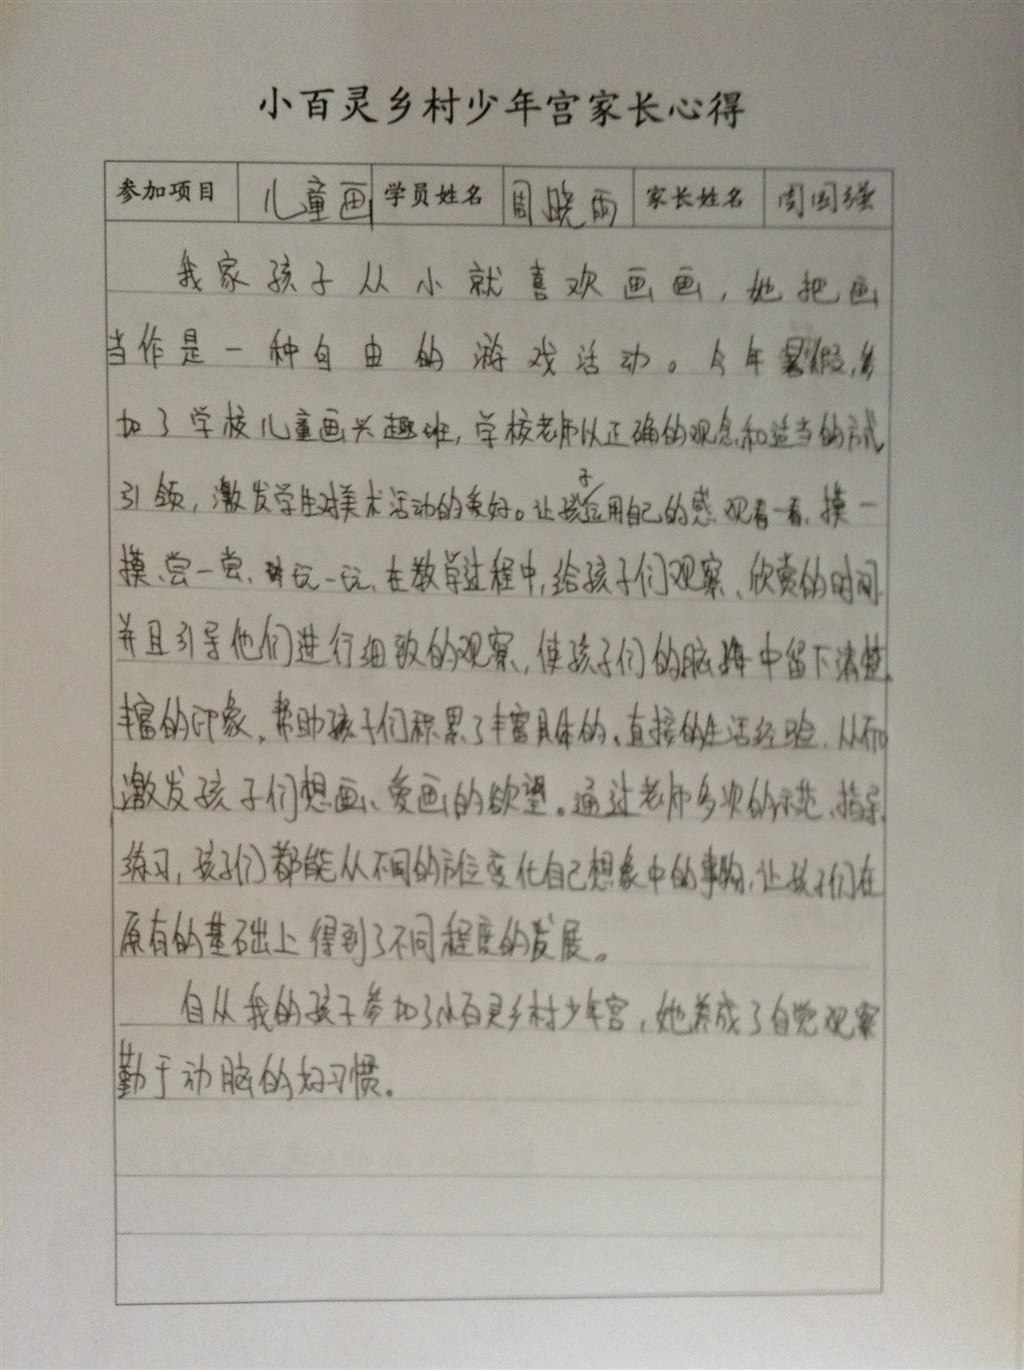 小百灵乡村少年宫家长心得
参加项目 儿童画 学员姓名 周晓雨 家长姓名 周国强
我家孩子从小就喜欢画画，她把画
当作是一种自由的游戏活动。今年暑假，参
加了学校儿童画兴趣班，学校老师以正确的观念和适当的方式
引领，激发学生对美术活动的爱好。让孩子运用自己的感观看一看、摸一
摸、尝一尝、玩一玩，在教学过程中，给孩子们观察、欣赏的时间
并且引导他们进行细致的观察，使孩子们的脑海中留下清楚
丰富的印象，帮助孩子们积累了丰富具体的、直接的生活经验，从而
激发孩子们想画、爱画的欲望。通过老师多次的示范、指导、
练习，孩子们都能从不同的方位变化自己想象中的事物，让孩子们在
原有的基础上得到了不同程度的发展。
自从我的孩子参加了小百灵乡村少年宫，她养成了自觉观察
勤于动脑的好习惯。